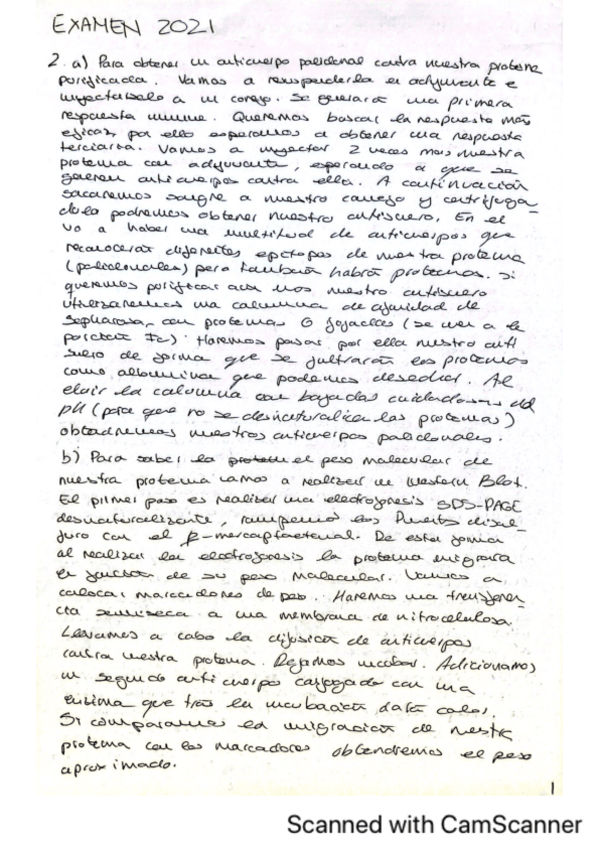 EXAMEN 2021
2. a) Para obtener un anticuerpo policlonal contra nuestra proteina
purificada. Vamos a resuspenderla en adyuvante e
inyectarselo a un conejo. Se generará una primera
respuesta inmune. Queremos buscar la respuesta más
eficaz, por ello esperamos a obtener una respuesta
terciaria. Vamos a inyectar 2 veces más nuestra
proteina con adyuvante, esperando a que se
generen anticuerpos contra ella. A continuación
sacaremos sangre a nuestro conejo y centrifugan-
dola podremos obtener nuestro antisuero. En el
va a haber una multitud de anticuerpos que
reconocerán diferentes epitopos de nuestra proteina
(policlonales) pero también habrá proteinas. Si
queremos purificar aun más nuestro antisuero
utilizaremos una columna de afinidad de
sepharosa, con proteinas G fijadas (se une a la
porción Fc). Haremos pasar por ella nuestro anti
suero de forma que se filtrarán las proteinas
como albumina que podemos desechar. Al
eluir la columna con bajadas cuidadosas del
pH (para que no se desnaturalice las proteinas)
obtendremos nuestros anticuerpos policlonales.
b) Para saber la el peso molecular de
nuestra proteina vamos a realizar un Western Blot.
El primer paso es realizar una electroforesis SDS-PAGE
desnaturalizante, rompemos los Puentes disul-
furo con el β-mercaptoetanol. De esta forma
al realizar la electroforesis la proteina migrará
en función de su peso molecular. Vamos a
colocar marcadores de peso. Haremos una transferen-
cia semiseca a una membrana de nitrocelulosa.
Llevamos a cabo la difusión de anticuerpos
contra nuestra proteina. Dejamos incubar. Adicionamos
un segundo anticuerpo conjugado con una
enzima que tras la incubación dará color.
Si comparamos la migración de nuestra
proteina con los marcadores obtendremos el peso
aproximado.
1
Scanned with CamScanner